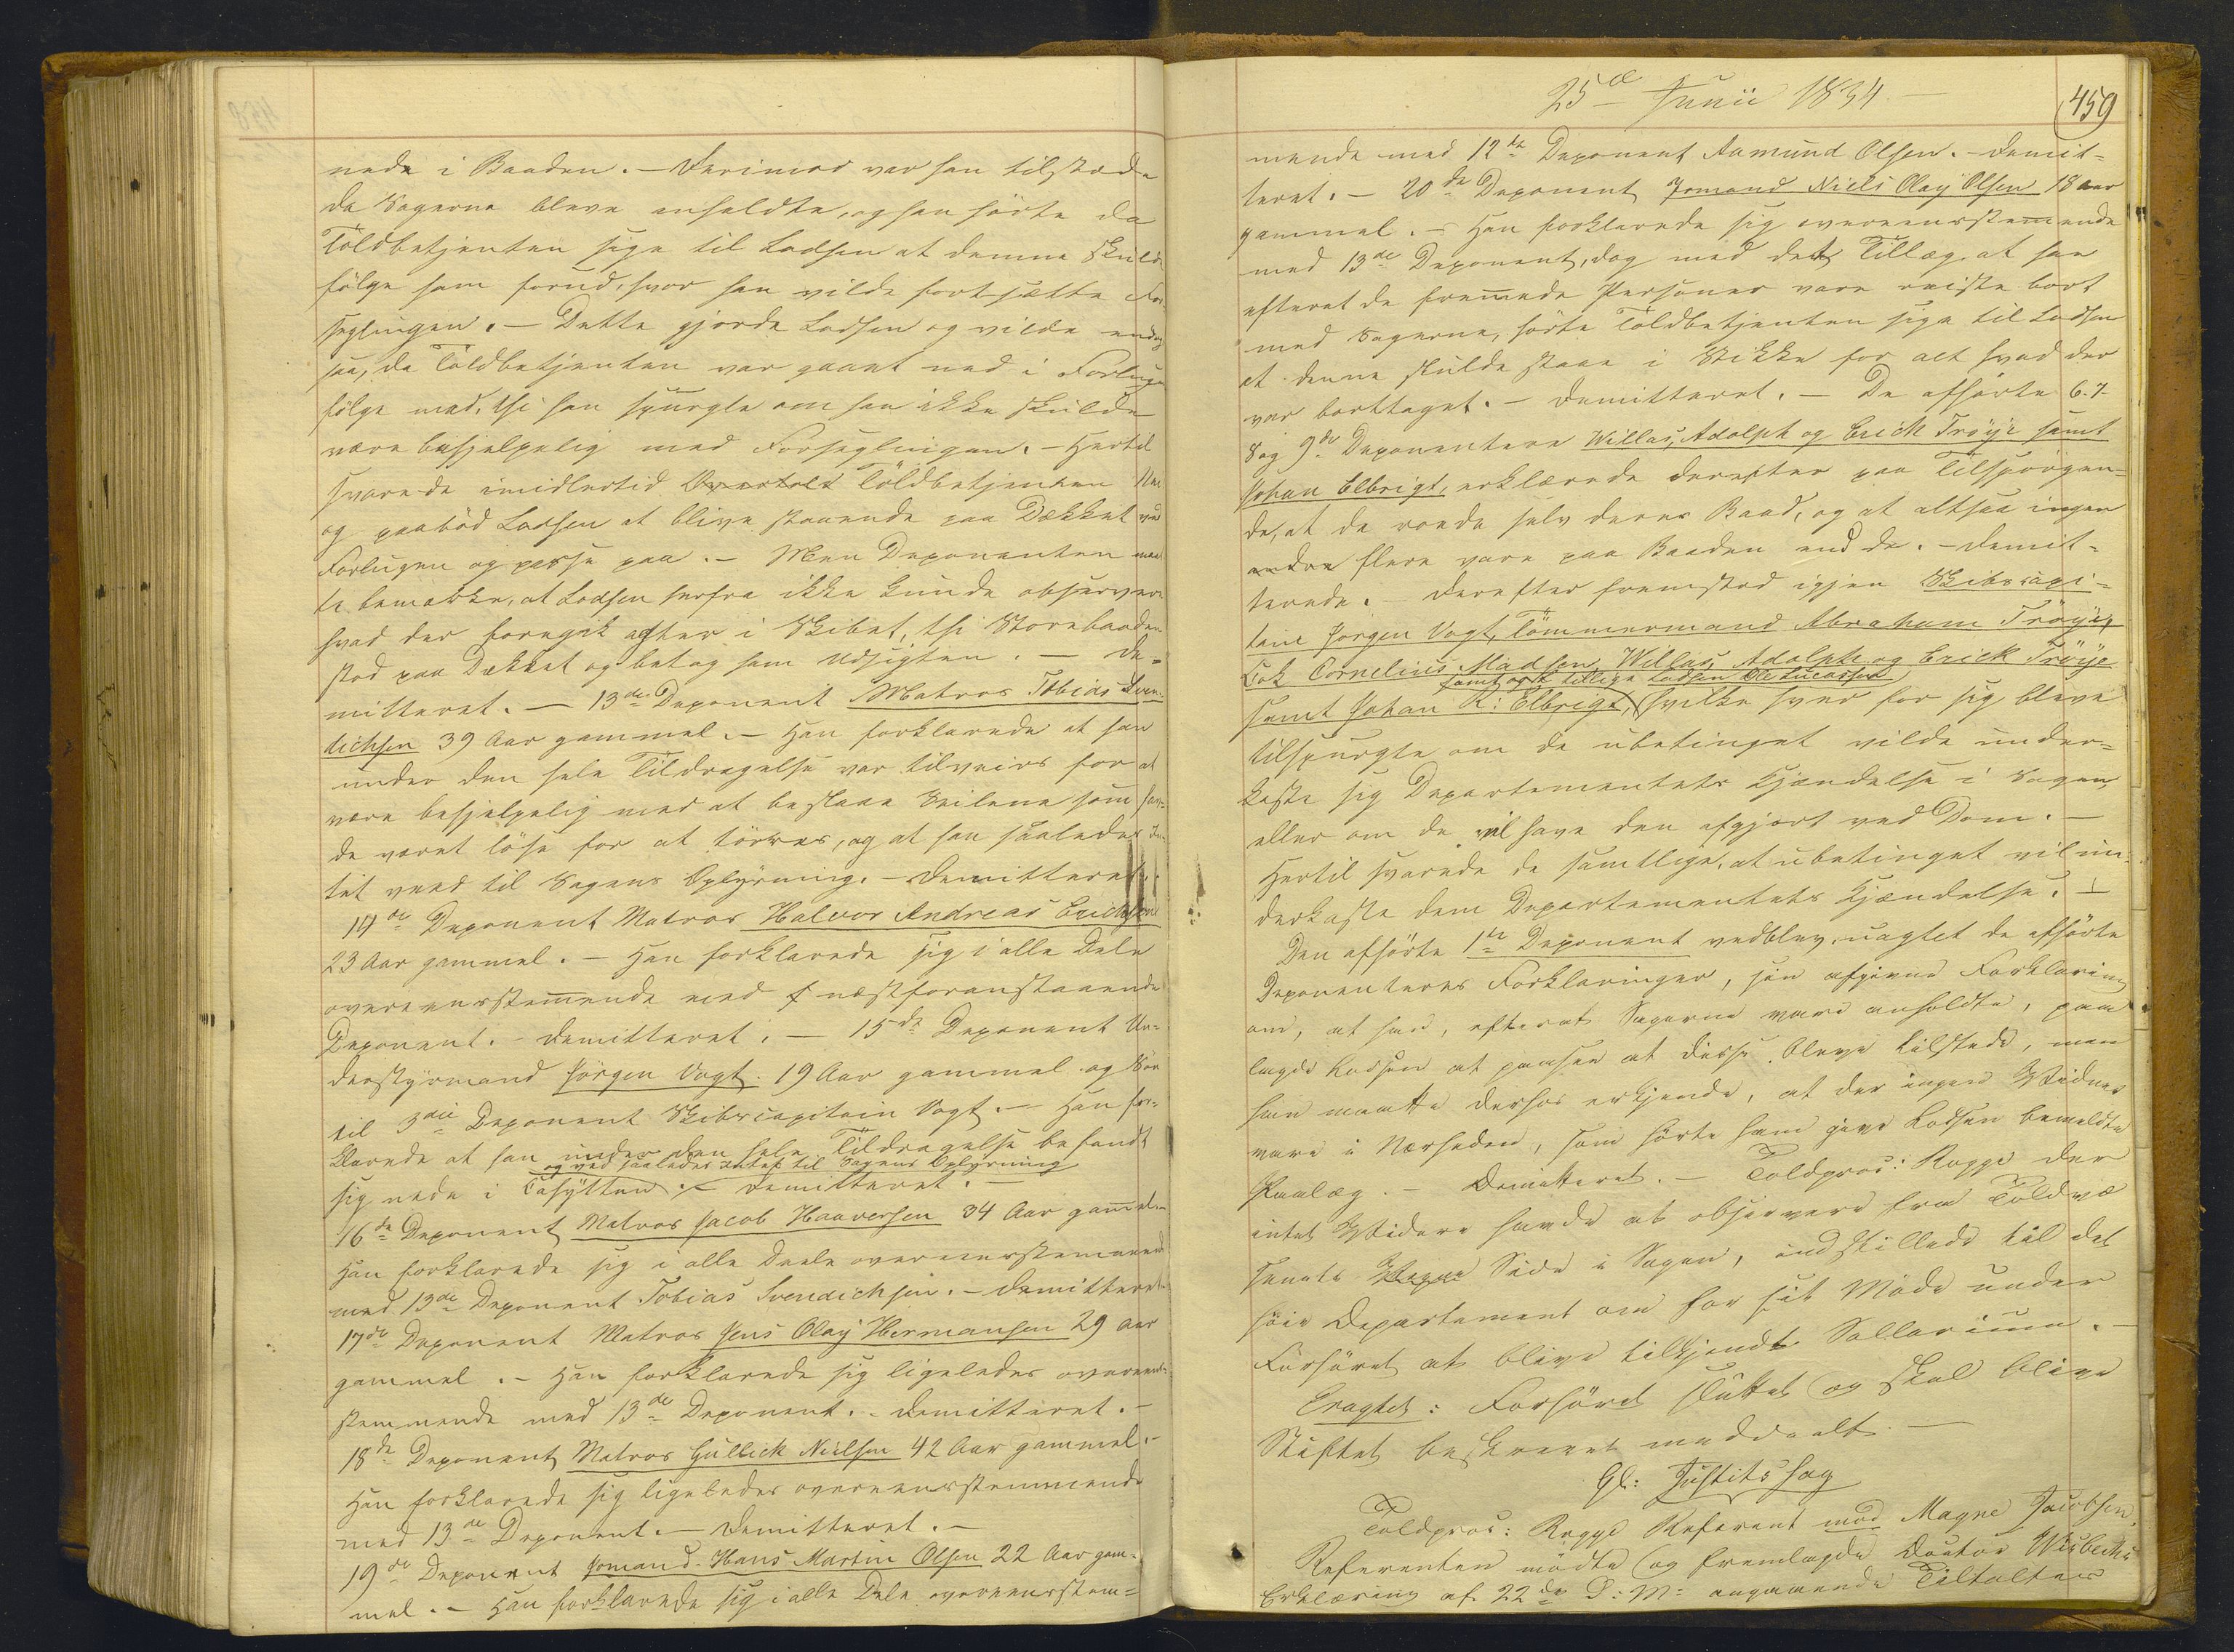 nede i Baaden. – Derimod var han tilstæde
da Sagerne bleve anholdte, og han hørte da
Toldbetjenten sige til Lodsen at denne skulde
følge ham forud, hvor han vilde fortsætte For-
seglingen. – Dette gjorde Lodsen og vilde endog-
saa, da Toldbetjenten var gaaet ned i Forlugen
følge med, thi han spurgte om han ikke skulde
være behjelpelig med Forseglingen. – Hertil
svarede imidlertid Toldbetjenten Nei
og paabød Lodsen at blive staaende paa Dækket ved
Forlugen og passe paa. – Men Deponenten maat-
te bemærke, at Lodsen herfra ikke kunde observere
hvad der foregik agter i Skibet, thi Storebaaden
stod paa Dækket og betog ham Udsigten. – De-
mitteret. – 13de Deponent Matros Tobias Sven-
dichsen 39 Aar gammel. – Han forklarede at han
under den hele Tildragelse var tilveirs for at
være behjelpelig med at beslaae Seilene som hav-
de været løse for at tørres, og at han saaledes In-
tet veed til Sagens Oplysning. – Demitteret. –
14de Deponent Matros Halvor Andreas Erichsen
23 Aar gammel. – Han forklarede sig i alle Dele
overeensstemmende med næstforanstaaende
Deponent. – Demitteret. – 15de Deponent Un-
derstyrmand Jørgen Vogt. 19 Aar gammel og Søn
til 3die Deponent Skibscapitain Vogt. – Han for-
klarede at han under den hele Tildragelse befandt
og ved saaledes intet til Sagens Oplysning
sig nede i Cahytten. – Demitteret. –
16de Deponent Matros Jacob Haaversen 34 Aar gammel. –
Han forklarede sig i alle Deele overeensstemmende
med 13de Deponent Tobias Svendichsen. – Demitteret. –
17de Deponent Matros Jens Olay Hermansen 29 Aar
gammel. – Han forklarede sig ligeledes overeens-
stemmende med 13de Deponent. – Demitteret. –
18de Deponent Matros Gullick Nielsen 42 Aar gammel. –
Han forklarede sig ligeledes overeensstemmende
med 13de Deponent. – Demitteret. –
19de Deponent Jomand Hans Martin Olsen 22 Aar gam-
mel. – Han forklarede sig i alle Dele overeensstem-
25de Junii 1834
459
mende med 12te Deponent Aamund Olsen. – Demit-
teret. – 20de Deponent Jomand Niels Olay Olsen 18 Aar
gammel. – Han forklarede sig overeensstemmende
med 13de Deponent, dog med det Tillæg at han
efterat de fremmede Personer vare reiste bort
med Sagerne, hørte Toldbetjenten sige til Lodsen
at denne skulde staae i Stikke for alt hvad der
var borttaget. – Demitteret. – De afhørte 6. 7.
8 og 9de Deponentere Willas, Adolph og Erich Trøye samt
Johan Elbrigt, erklærede derefter paa Tilspørgen-
de, at de roede selv deres Baad, og at altsaa ingen
andre flere vare paa Baaden end de. – Demit-
terede. – Derefter fremstod igjen Skibscapi-
tain Jørgen Vogt, Tømmermand Abraham Trøye,
Cok Cornelius Madsen, Willas, Adolph og Erick Trøye
samt og tillige Lodsen Ole Lucassen
samt Johan R: Elbrigt, hvilke hver for sig bleve
tilspurgte om de ubetinget vilde under-
kaste sig Departementets Kjendelse i Sagen,
eller om de vil have den afgjort ved Dom. –
Hertil svarede de samtlige, at ubetinget vil un-
derkaste dem Departementets Kjendelse. –
Den afhørte 1te Deponent vedblev, uagtet de afhørte
Deponenteres Forklaringer, sin afgivne Forklaring
om, at han, efterat Sagerne vare anholdte, paa
lagde Lodsen at paasee at disse bleve tilstede, men
han maatte derhos erkjende, at der ingen Vidner
vare i Nærheden, som hørte ham give Lodsen bemeldte
Paalæg. – Demitteret. – Toldproc: Rogge der
intet Videre havde at observere fra Toldvæ
senets Side i Sagen, indstillede til det
høie Departement om for sit Møde under
Forhøret at blive tilkjendt Sallarium. –
Eragtet: Forhøret sluttet og skal blive
Stiftet beskrevet meddeelt. –
Gl: Justits Sag
Toldproc: Rogge Referent mod Magne Jacobsen.
Referenten mødte og fremlagde Doctor Wisbechs
Erklæring af 22de D: M: angaaende Tiltaltes